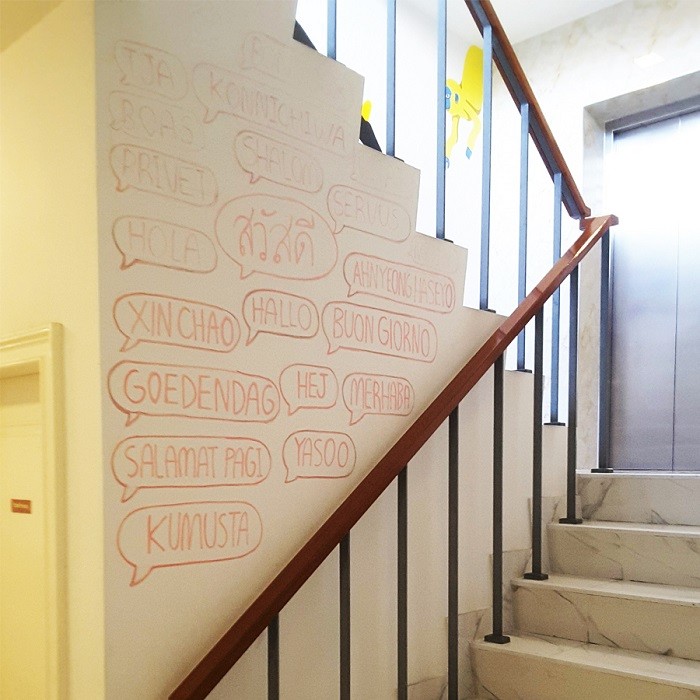 TJA
KONNICHIWA
SHALOM
PRIVET
SERVUS
สวัสดี
HOLA
AHNYEONG HASEYO
XIN CHAO
HALLO
BUON GIORNO
GOEDENDAG
HEJ
MERHABA
SALAMAT PAGI
YASOO
KUMUSTA